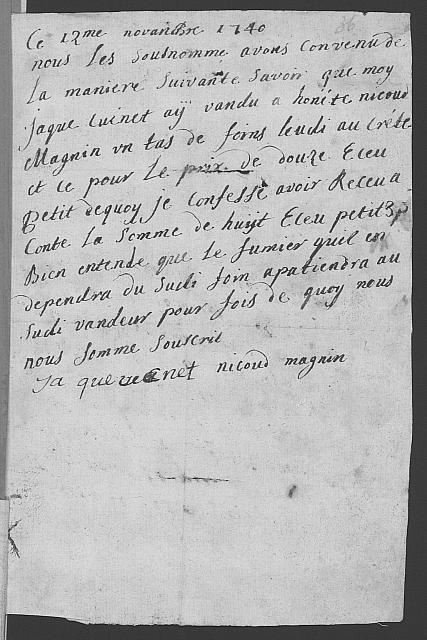 Ce 12me novambre 1740
nous Les Sousnomme avons Convenu de
La maniere Suivante Savoir que moy
Jaque Cuinet aÿ vandu a honête nicoud
Magnin vn tas de foins leudi au Crete
et ce pour Le prix de douze Eceu
petit dequoy je Confesse avoir Receu a
Conte La Somme de huyt Eceu petit
Bien entende que Le fumier quil en
dependra du Sudi foin apatiendra au
Sudi vandeur pour fois de quoy nous
nous Somme Souscrit
Ja que nicoud magnin